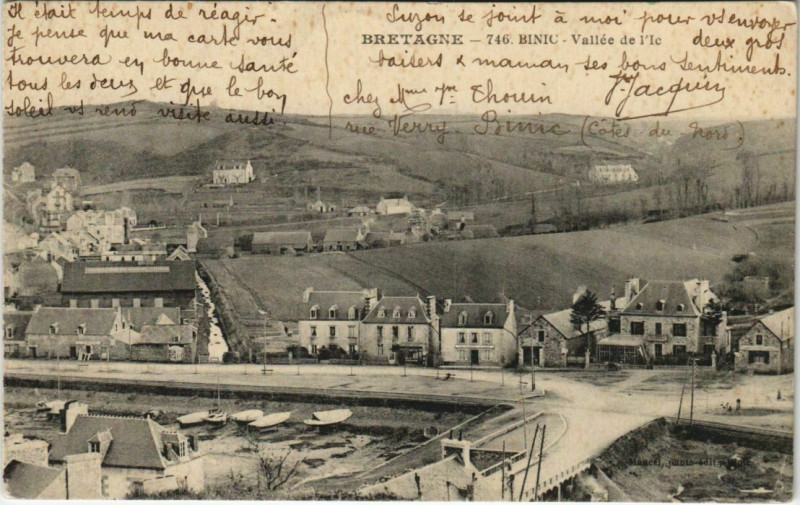 Il était temps de réagir.
Je pense que ma carte vous
trouvera en bonne santé
tous les deux et que le bon
soleil vs rend visite aussi
Suzon se joint à moi pour vs envoyer
BRETAGNE — 746. BINIC - Vallée de l'Ic
deux gros
baisers & maman ses bons sentiments.
J. Jacquin
chez Mme Vve Thouin
rue Verry. Binic (Côtes du Nord)